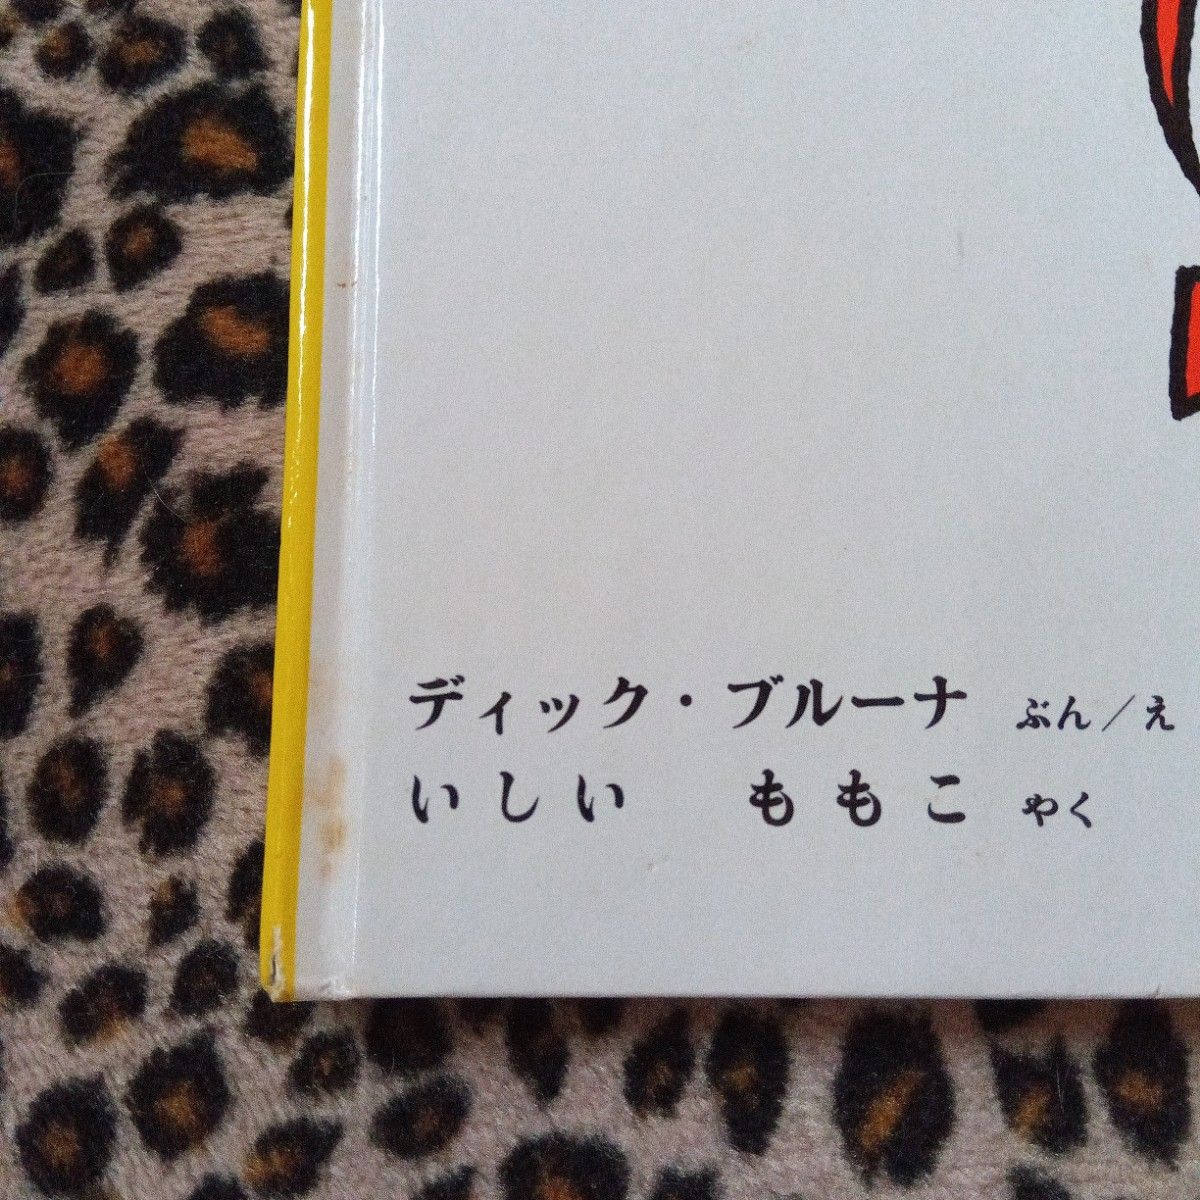 ディック・ブルーナ ぶん/え
いしい ももこ やく